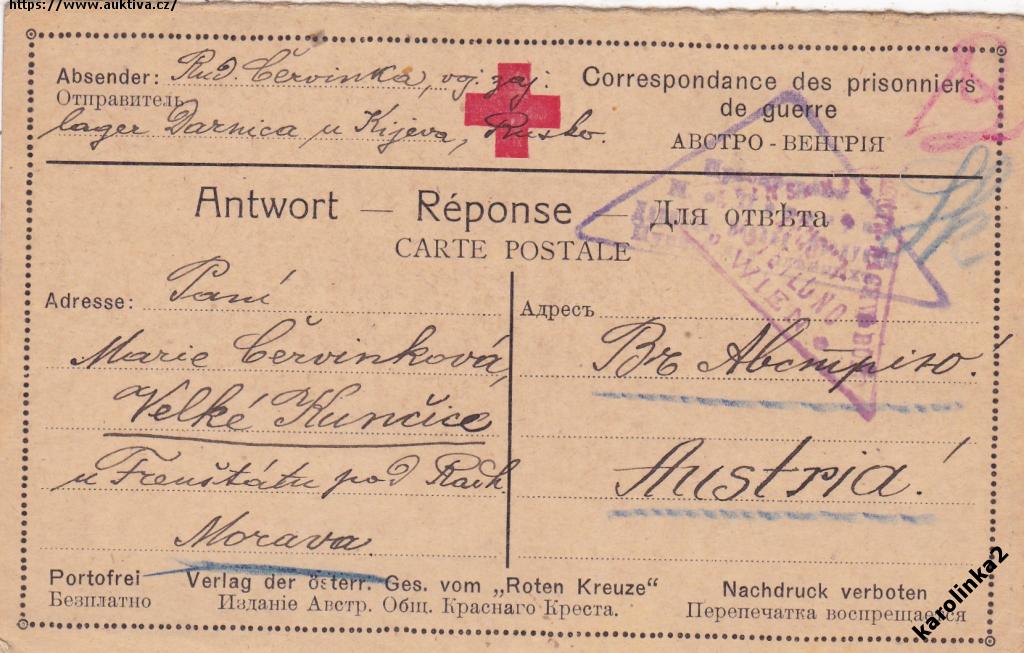 https://www.auktiva.cz/
Absender: Rud. Červinka, voj. zaj.
Отправитель
lager Darnica u Kijeva, Rusko.
Correspondance des prisonniers
de guerre
АВСТРО-ВЕНГРІЯ
Antwort — Réponse — Для отвѣта
CARTE POSTALE
WIEN
Adresse: Paní
Marie Červinková,
Velké Kunčice
u Frenštátu pod Radh.
Morava
Адресъ
Въ Австрію!
Austria!
Portofrei Verlag der österr. Ges. vom „Roten Kreuze“ Nachdruck verboten
Безплатно Изданіе Австр. Общ. Краснаго Креста. Перепечатка воспрещается
karolinka2